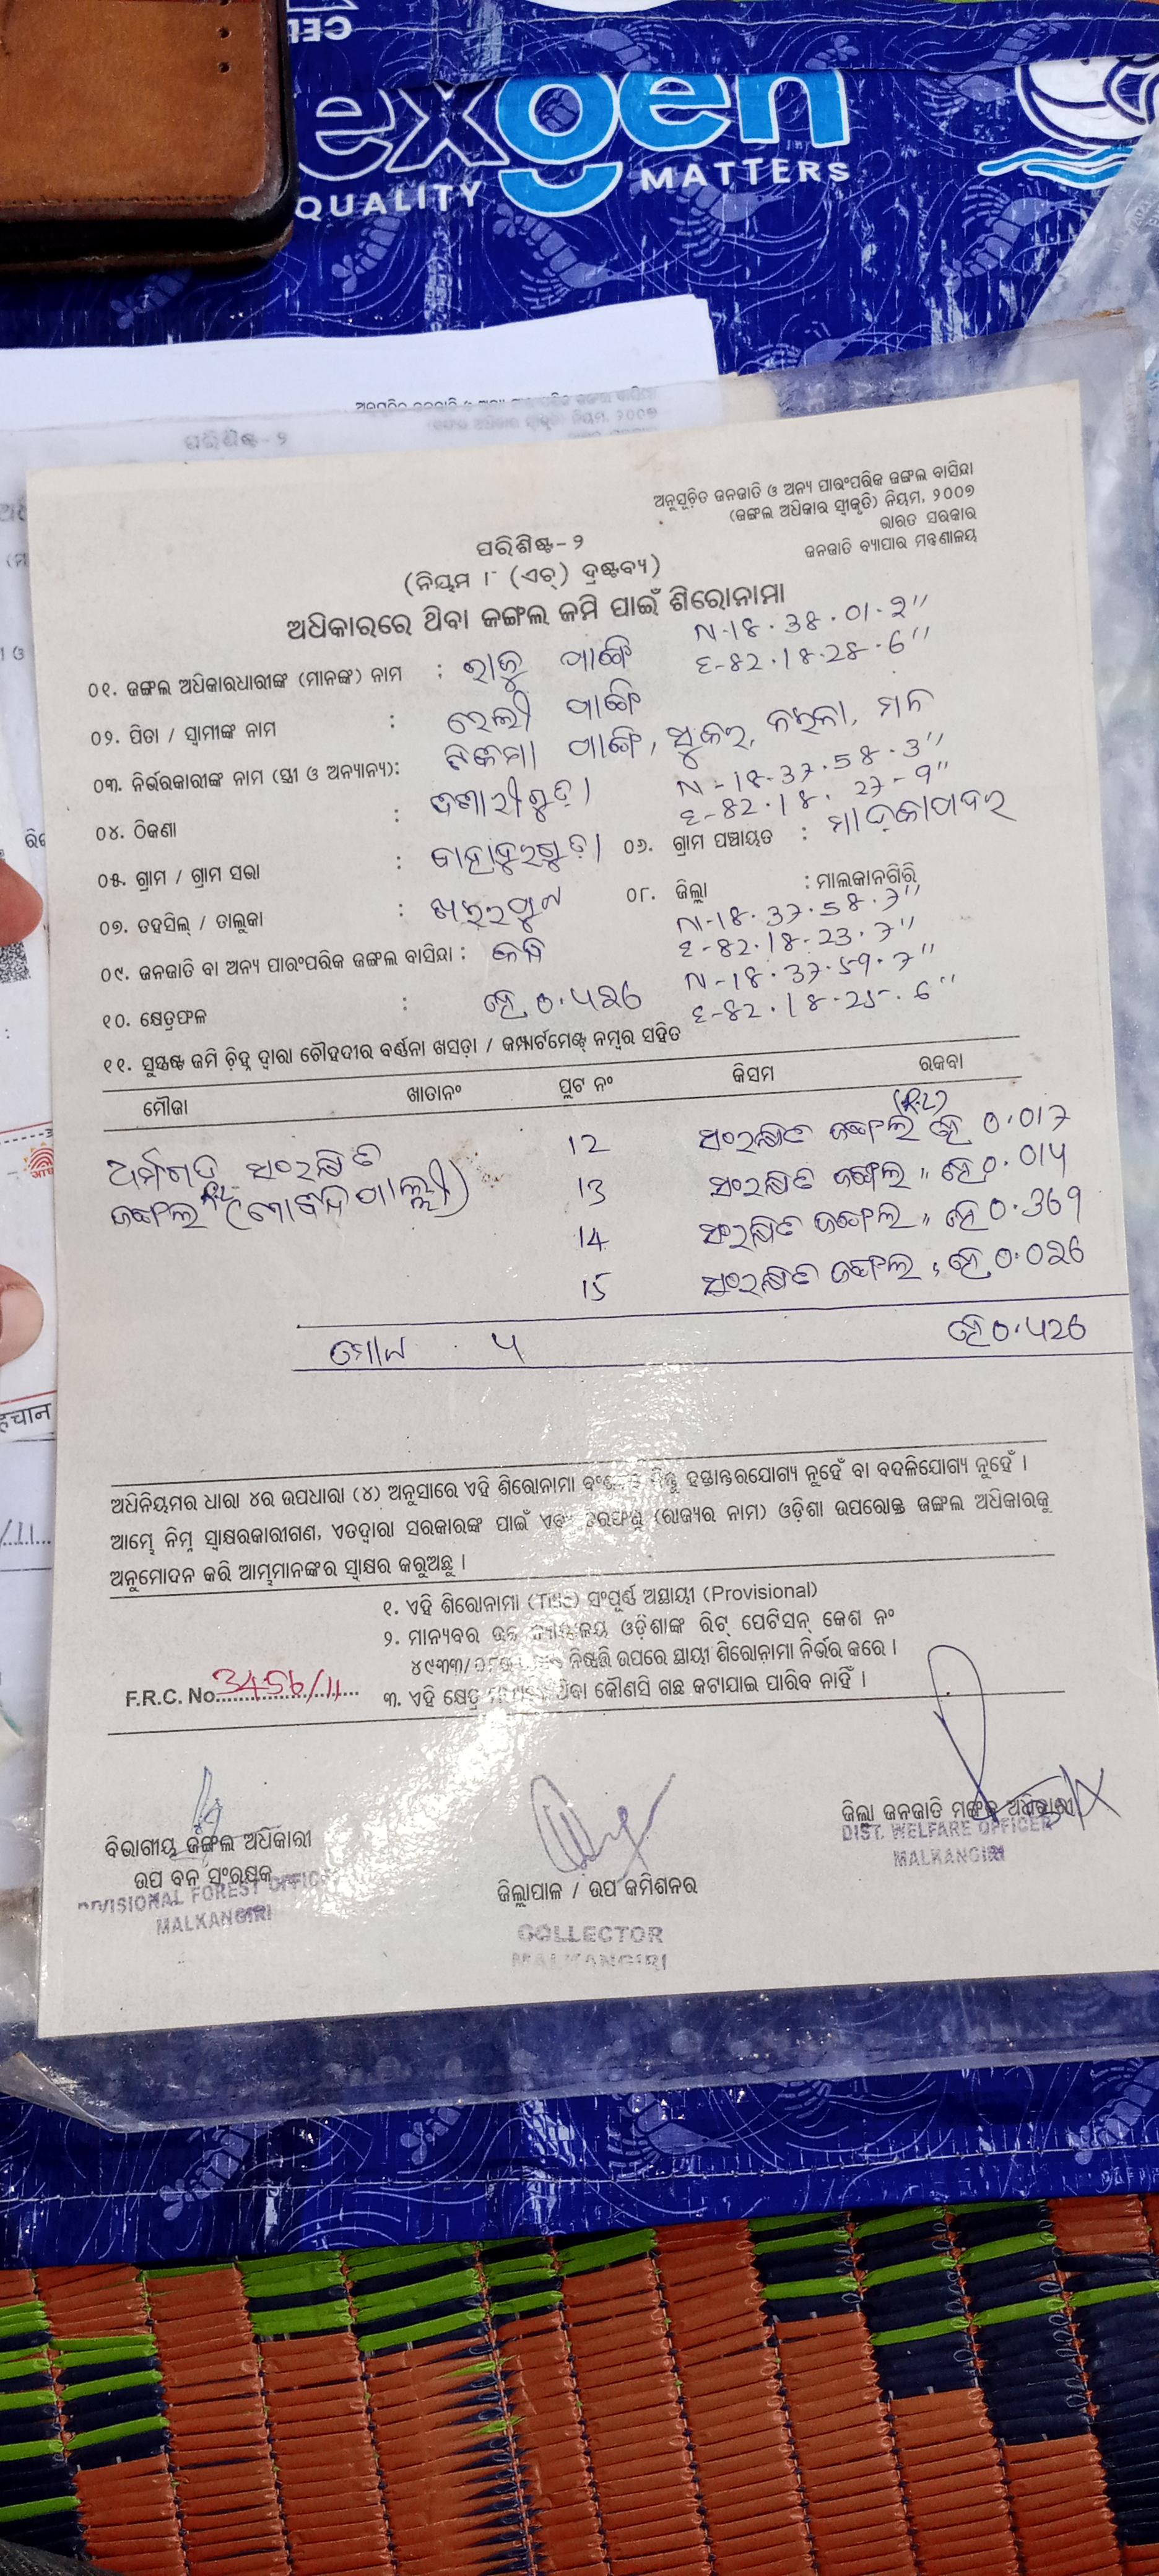 exgen
QUALITY MATTERS
ପରିଶିଷ୍ଟ - ୨
ଅନୁସୂଚିତ ଜନଜାତି ଓ ଅନ୍ୟ ପାରଂପରିକ ଜଙ୍ଗଲ ବାସିନ୍ଦା
(ଜଙ୍ଗଲ ଅଧିକାର ସ୍ୱୀକୃତି) ନିୟମ, ୨୦୦୭
ଭାରତ ସରକାର
ଜନଜାତି ବ୍ୟାପାର ମନ୍ତ୍ରଣାଳୟ
ପରିଶିଷ୍ଟ - ୨
(ନିୟମ ୮ (ଏଚ୍) ଦ୍ରଷ୍ଟବ୍ୟ)
ଅଧିକାରରେ ଥିବା ଜଙ୍ଗଲ ଜମି ପାଇଁ ଶିରୋନାମା
N-18.38.01.2"
୦୧. ଜଙ୍ଗଲ ଅଧିକାରଧାରୀଙ୍କ (ମାନଙ୍କ) ନାମ : ରାଜୁ ପାଙ୍ଗି E-82.18.28.6"
୦୨. ପିତା / ସ୍ୱାମୀଙ୍କ ନାମ : ପାଙ୍ଗି
୦୩. ନିର୍ଭରକାରୀଙ୍କ ନାମ (ସ୍ତ୍ରୀ ଓ ଅନ୍ୟାନ୍ୟ): ପାଙ୍ଗି,
N-18.37.58.3"
୦୪. ଠିକଣା : E-82.18.27-9"
୦୫. ଗ୍ରାମ / ଗ୍ରାମ ସଭା : ବାହାଦୁରଗୁଡ଼ା ୦୬. ଗ୍ରାମ ପଞ୍ଚାୟତ : ମାଦ୍‌କାପଦର
୦୭. ତହସିଲ୍ / ତାଲୁକା : ଖଇରପୁଟ ୦୮. ଜିଲ୍ଲା : ମାଲକାନଗିରି
N-18.37.58.7"
E-82.18.23.7"
୦୯. ଜନଜାତି ବା ଅନ୍ୟ ପାରଂପରିକ ଜଙ୍ଗଲ ବାସିନ୍ଦା : N-18.37.59.7"
୧୦. କ୍ଷେତ୍ରଫଳ : ହେ ୦.୪୨୬ E-82.18.25.6"
୧୧. ସୁସ୍ପଷ୍ଟ ଜମି ଚିହ୍ନ ଦ୍ୱାରା ଚୌହଦୀର ବର୍ଣ୍ଣନା ଖସଡ଼ା / କମ୍ପାର୍ଟମେଣ୍ଟ୍ ନମ୍ବର ସହିତ
ମୌଜା ଖାତାନଂ ପ୍ଲଟ ନଂ କିସମ ରକବା
ସଂରକ୍ଷିତ 12 ସଂରକ୍ଷିତ ଜଙ୍ଗଲ ହେ 0.017
ଜଙ୍ଗଲ 13 ସଂରକ୍ଷିତ ଜଙ୍ଗଲ " ହେ ୦.01୪
14 ସଂରକ୍ଷିତ ଜଙ୍ଗଲ " ହେ ୦.369
15 ସଂରକ୍ଷିତ ଜଙ୍ଗଲ " ହେ ୦.୦୨6
ମୋଟ ୪ ହେ ୦.୪26
ଅଧିନିୟମର ଧାରା ୪ର ଉପଧାରା (୪) ଅନୁସାରେ ଏହି ଶିରୋନାମା ହସ୍ତାନ୍ତରଯୋଗ୍ୟ ନୁହେଁ ବା ବଦଳିଯୋଗ୍ୟ ନୁହେଁ ।
ଆମ୍ଭେ ନିମ୍ନ ସ୍ୱାକ୍ଷରକାରୀଗଣ, ଏତଦ୍ୱାରା ସରକାରଙ୍କ ପାଇଁ ଏବଂ ତରଫରୁ (ରାଜ୍ୟର ନାମ) ଓଡ଼ିଶା ଉପରୋକ୍ତ ଜଙ୍ଗଲ ଅଧିକାରକୁ
ଅନୁମୋଦନ କରି ଆମ୍ଭମାନଙ୍କର ସ୍ୱାକ୍ଷର କରୁଅଛୁ ।
୧. ଏହି ଶିରୋନାମା (Title) ସଂପୂର୍ଣ୍ଣ ଅସ୍ଥାୟୀ (Provisional)
୨. ମାନ୍ୟବର ଓଡ଼ିଶାଙ୍କ ରିଟ୍ ପେଟିସନ୍ କେଶ ନଂ
୪୯୩୩/ ନିଷ୍ପତ୍ତି ଉପରେ ସ୍ଥାୟୀ ଶିରୋନାମା ନିର୍ଭର କରେ ।
F.R.C. No. 3456/11 ୩. ଏହି କ୍ଷେତ୍ର ଥିବା କୌଣସି ଗଛ କଟାଯାଇ ପାରିବ ନାହିଁ ।
ବିଭାଗୀୟ ଜଙ୍ଗଲ ଅଧିକାରୀ
ଉପ ବନ ସଂରକ୍ଷକ
DIVISIONAL FOREST OFFICER
MALKANGIRI
ଜିଲ୍ଲାପାଳ / ଉପ କମିଶନର
COLLECTOR
MALKANGIRI
ଜିଲ୍ଲା ଜନଜାତି ମଙ୍ଗଳ ଅଧିକାରୀ
DIST. WELFARE OFFICER
MALKANGIRI